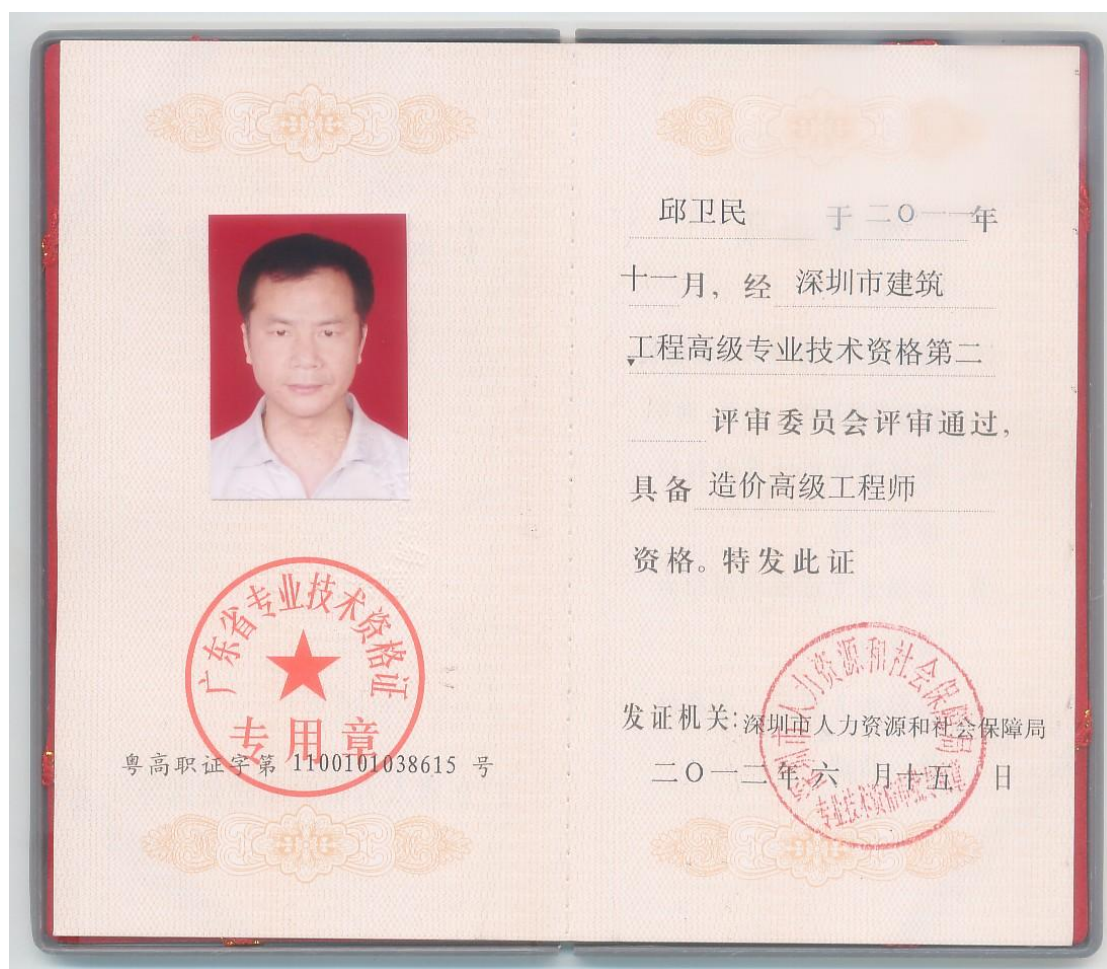 广东省专业技术资格证
专用章
粤高职证字第 1100101038615 号
邱卫民 于 二〇一一年
十一月，经 深圳市建筑
工程高级专业技术资格第二
评审委员会评审通过，
具备 造价高级工程师
资格。特发此证
深圳市人力资源和社会保障局
发证机关：深圳市人力资源和社会保障局
二〇一二年 六 月十五 日